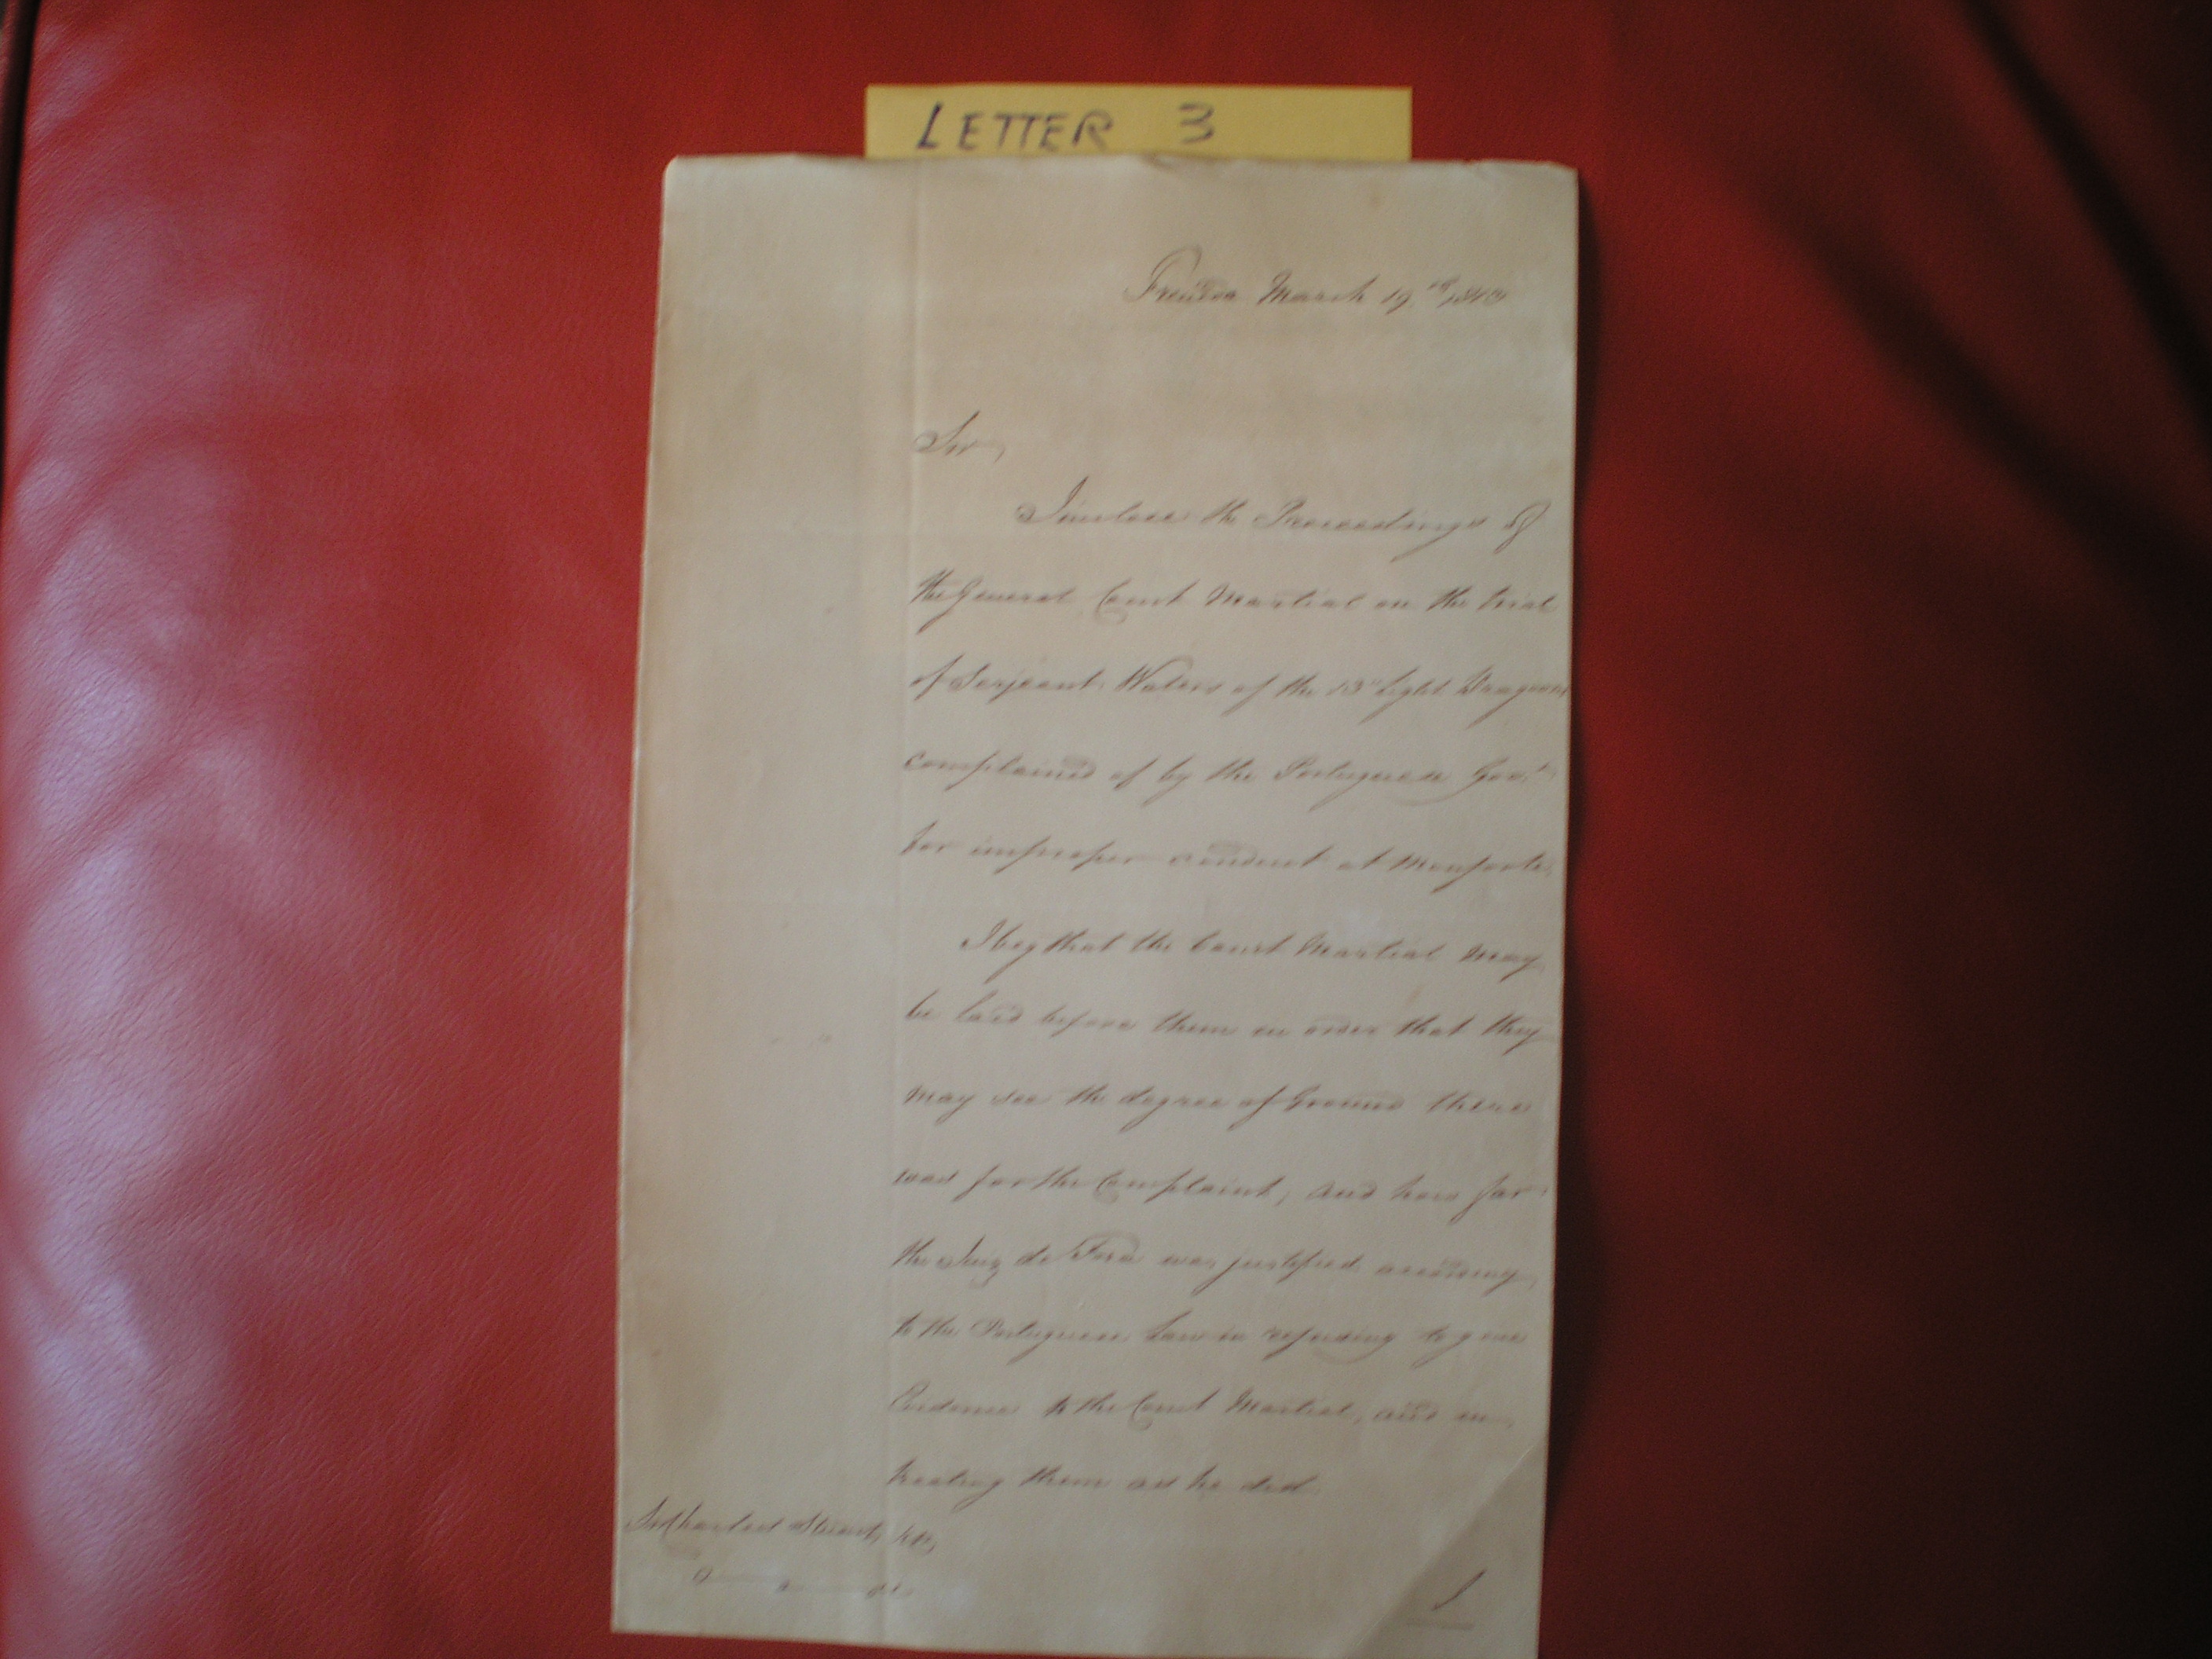 LETTER 3
Freneda March 19th 1813
Sir,
I enclose the Proceedings of
the General Court Martial on the trial
of Serjeant Waters of the 13th Light Dragoons
complained of by the Portuguese Govt.
for improper conduct at Monforte.
I beg that the Court Martial may
be laid before them in order that they
may see the degree of Ground there
was for the Complaint, and how far
the Juiz de Fora was justified according
to the Portuguese Law in refusing to give
Evidence to the Court Martial, and in
treating them as he did.
Sir Charles Stuart, KB,
I